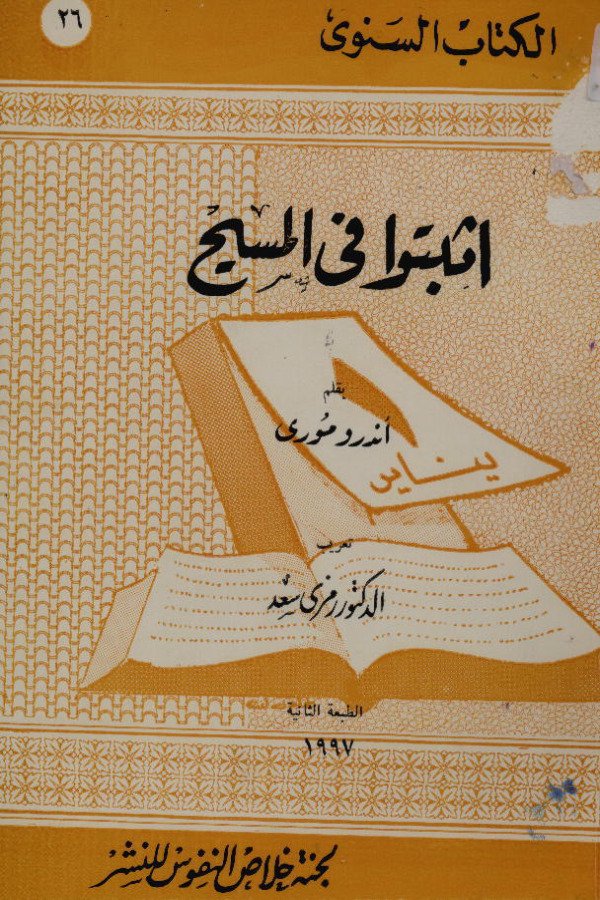 ٢٦
الكتاب السنوى
اثبتوا فى المسيح
١
يناير
بقلم
أندرو مورى
تعريب
الدكتور رمزى سعد
الطبعة الثانية
١٩٩٧
لجنة خلاص النفوس للنشر